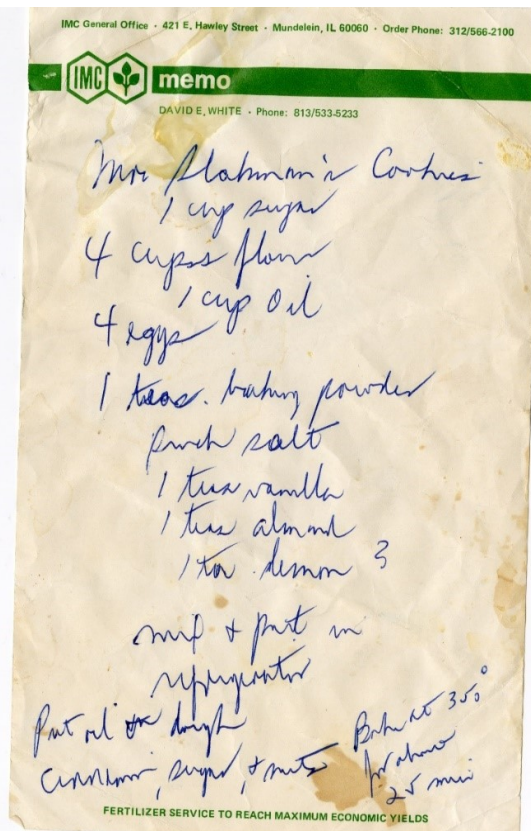 IMC General Office · 421 E. Hawley Street · Mundelein, IL 60060 · Order Phone: 312/566-2100
IMC memo
DAVID E. WHITE · Phone: 813/533-5233
Cookies
1 cup sugar
4 cups flour
1 cup oil
4 eggs
1 teas. baking powder
pinch salt
1 teas vanilla
1 teas almond
lemon
mix + put in
refrigerator
Put oil dough
cinnamon, sugar, + nuts
Bake at 350°
for about
25 min
FERTILIZER SERVICE TO REACH MAXIMUM ECONOMIC YIELDS